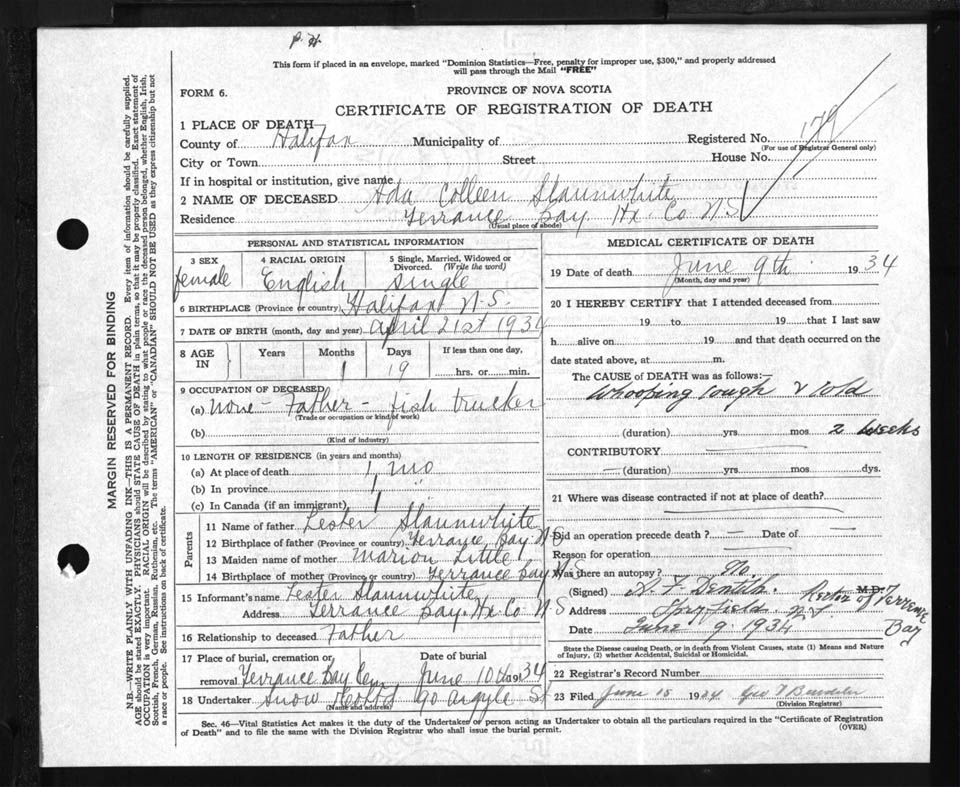 P. H.
This form if placed in an envelope, marked "Dominion Statistics—Free, penalty for improper use, $300," and properly addressed
will pass through the Mail "FREE"
FORM 6.
PROVINCE OF NOVA SCOTIA
CERTIFICATE OF REGISTRATION OF DEATH
1 PLACE OF DEATH
County of Halifax Municipality of Registered No. 179
(For use of Registrar General only)
City or Town Street House No.
If in hospital or institution, give name
2 NAME OF DECEASED Ada Colleen Slaunwhite
Residence Terrance Bay Hx. Co N.S
(Usual place of abode)
PERSONAL AND STATISTICAL INFORMATION
3 SEX 4 RACIAL ORIGIN 5 Single, Married, Widowed or
Divorced. (Write the word)
female English Single
6 BIRTHPLACE (Province or country) Halifax N.S.
7 DATE OF BIRTH (month, day and year) april 21st 1934
8 AGE IN Years Months Days If less than one day,
1 19 hrs. or min.
9 OCCUPATION OF DECEASED
(a) none - Father - fish trucker
(Trade or occupation or kind of work)
(b)
(Kind of industry)
10 LENGTH OF RESIDENCE (in years and months)
(a) At place of death 1 mo
(b) In province 1 "
(c) In Canada (if an immigrant) 1
Parents
11 Name of father Lester Slaunwhite
12 Birthplace of father (Province or country) Terrance Bay N.S
13 Maiden name of mother Marion Little
14 Birthplace of mother (Province or country) Terrance Bay N.S
15 Informant's name Lester Slaunwhite
Address Terrance Bay Hx. Co N.S
16 Relationship to deceased Father
17 Place of burial, cremation or Date of burial
removal Terrance Bay Cem June 10th 1934
18 Undertaker Snow & Co Ltd 90 Argyle St
(Name and address)
MEDICAL CERTIFICATE OF DEATH
19 Date of death June 9th 1934
(Month, day and year)
20 I HEREBY CERTIFY that I attended deceased from
19 to 19 that I last saw
h alive on 19 and that death occurred on the
date stated above, at m.
The CAUSE of DEATH was as follows:—
Whooping Cough & Cold
(duration) yrs. mos. 2 weeks
CONTRIBUTORY
(duration) yrs. mos. dys.
21 Where was disease contracted if not at place of death?
Did an operation precede death? — Date of —
Reason for operation
Was there an autopsy? No.
(Signed) M.D. Rector of Terrence Bay
Address Spryfield N.S
Date June 9. 1934
State the Disease causing Death, or in death from Violent Causes, state (1) Means and Nature
of Injury, (2) whether Accidental, Suicidal or Homicidal.
22 Registrar's Record Number
23 Filed June 15 1934 Geo
(Division Registrar)
Sec. 46—Vital Statistics Act makes it the duty of the Undertaker or person acting as Undertaker to obtain all the particulars required in the "Certificate of Registration
of Death" and to file the same with the Division Registrar who shall issue the burial permit. (OVER)
MARGIN RESERVED FOR BINDING
N.B.—WRITE PLAINLY WITH UNFADING INK—THIS IS A PERMANENT RECORD. Every item of information should be carefully supplied.
AGE should be stated EXACTLY. PHYSICIANS should STATE CAUSE OF DEATH in plain terms, so that it may be properly classified. Exact statement of
OCCUPATION is very important. RACIAL ORIGIN will be described by stating to what people or race the deceased person belonged, whether English, Irish,
Scottish, French, German, Russian, Ruthenian, etc. The terms "AMERICAN" or "CANADIAN" SHOULD NOT BE USED as they express citizenship but not
a race or people. See instructions on back of certificate.